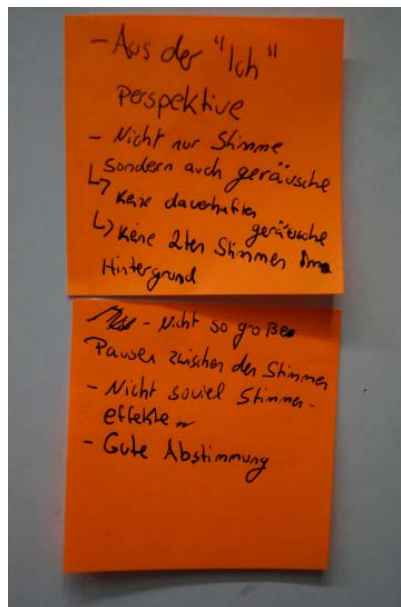 - Aus der "Ich"
Perspektive
- Nicht nur Stimme
sondern auch geräusche
↳ Keine dauerhaften
geräusche
↳ Keine 2ten Stimmen im
Hintergrund
- Nicht so große
Pausen zwischen den Stimmen
- Nicht soviel Stimmen-
effekte
- Gute Abstimmung